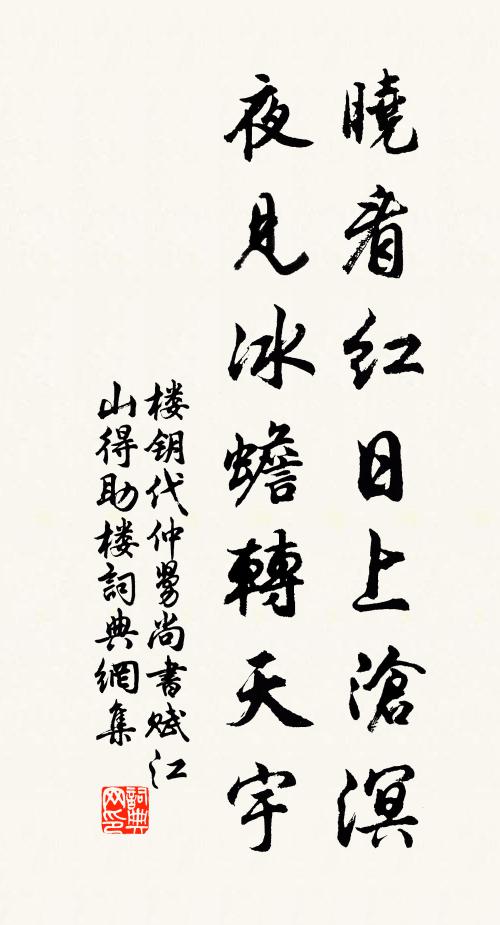 曉看紅日上滄溟
夜見冰蟾轉天宇
楼钥代仲舅尚書賦江
山得助楼詞典網集
詞典
网印